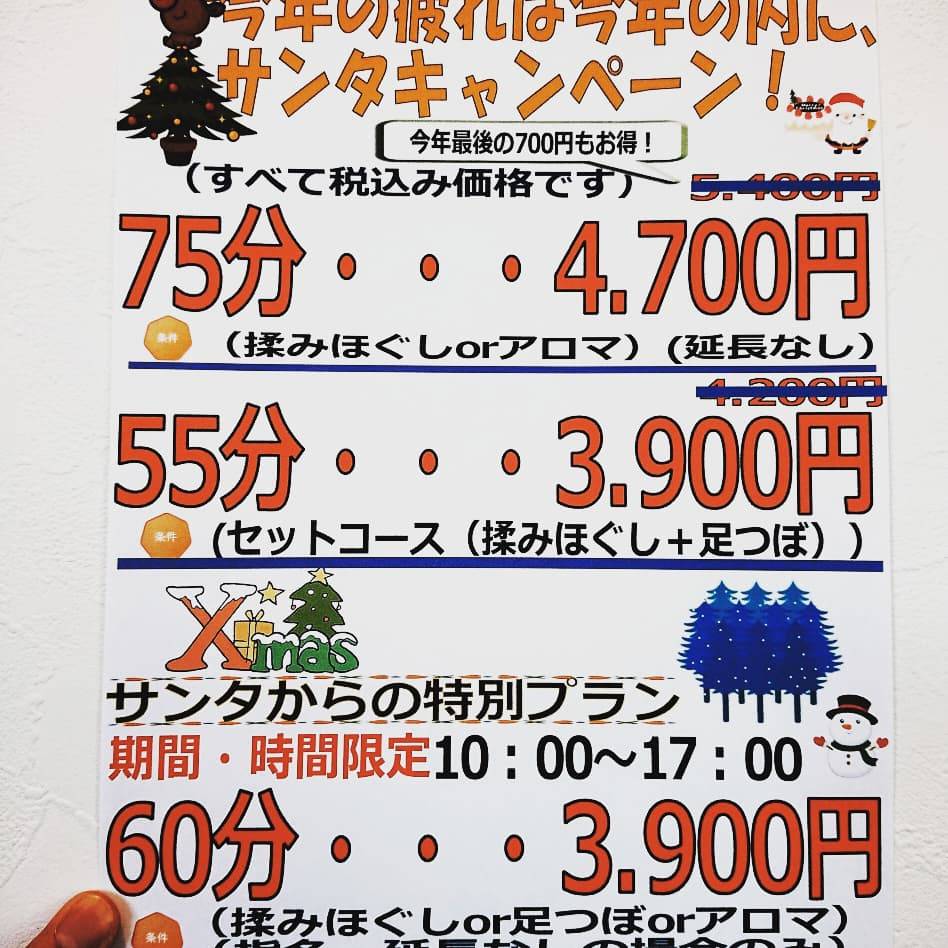 今年の疲れは今年の内に、
サンタキャンペーン!
今年最後の700円もお得!
(すべて税込み価格です)
5.400円
75分・・・4.700円
条件
(揉みほぐしorアロマ)(延長なし)
4.200円
55分・・・3.900円
条件
(セットコース(揉みほぐし+足つぼ))
Xmas
サンタからの特別プラン
期間・時間限定10:00~17:00
60分・・・3.900円
条件
(揉みほぐしor足つぼorアロマ)
(指名、延長なしの場合のみ)